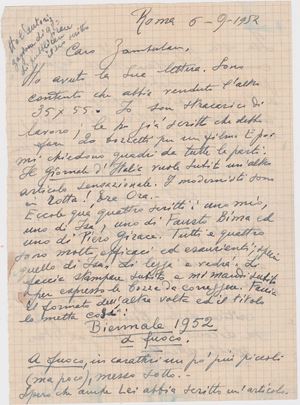 Roma 6-9-1952
Caro Zambutan.
Ho avuto la Sua lettera. Sono
contento che abbia venduto l'altro
35 x 55. Io son stracarico di
lavoro, le ho già scritto che debbo
fare 20 bozzetti per un film! E poi
mi chiedono quadri da tutte le parti.
Il Giornale d'Italia vuole subito un altro
articolo sensazionale. I modernisti sono
in rotta! Era Ora.
Eccole qua quattro scritti: uno mio,
uno di Isa, uno di Fausto Bima ed
uno di Piero Girace. Tutti e quattro
sono molto efficaci ed esaurienti; specie
quello di Isa. Li legga e vedrà. Li
faccia stampare subito e mi mandi subito
per espresso le bozze da correggere. Faccia
il formato dell'altra volta ed il titolo
lo metta così:
Biennale 1952
a fuoco.
A fuoco, in caratteri un po' più piccoli
(ma poco), messo sotto.-
Spero che anche Lei abbia scritto un articolo.